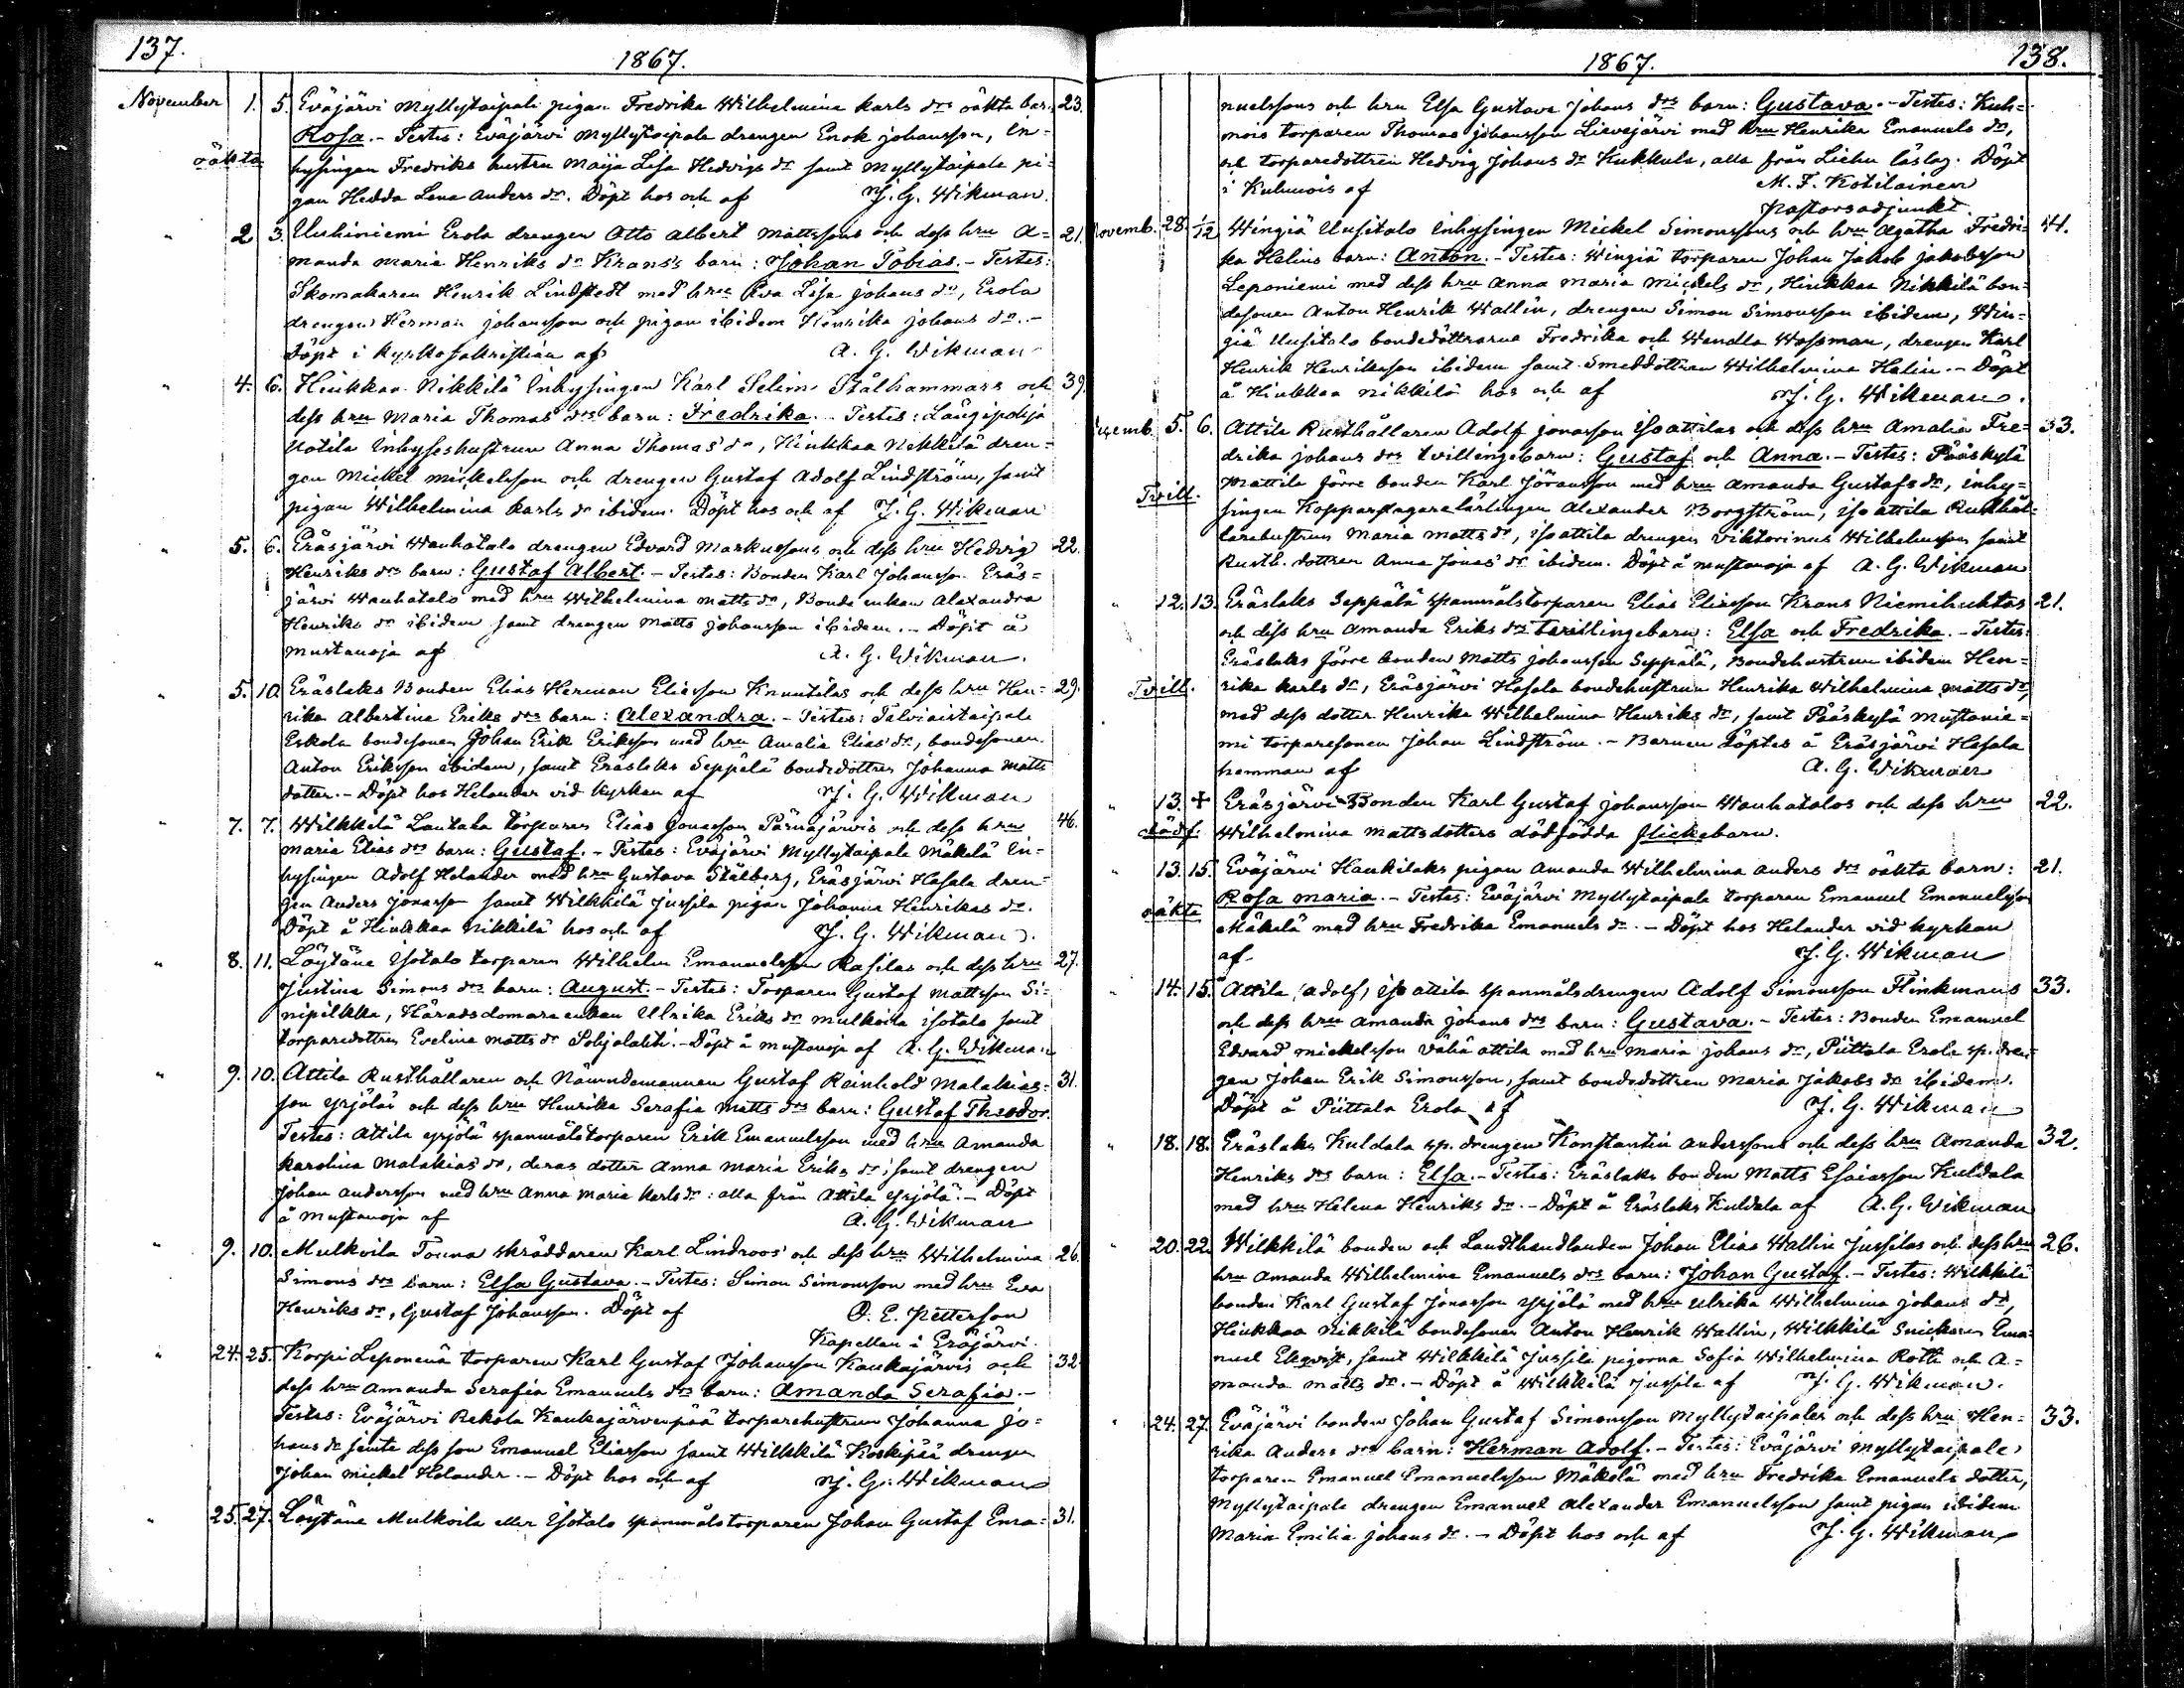 137.
1867.
November 1. 5. Eväjärvi Myllytaipale pigan Fredrika Wilhelmina Karls drs oäkta barn 23.
Rosa. - Testes: Eväjärvi Myllytaipale drengen Enok Johansson, In-
oäkta
hysingen Fredriks hustru Maija Lisa Hedvigs dr samt Myllytaipale pi-
gan Hedda Lena Anders dr. Döpt hos och af J. G. Wikman.
" 2. 3. Uuhiniemi Erola drengen Otto Albert Mattssons och dess hru A- 21.
manda Maria Henriks dr Krans's barn: Johan Tobias. - Testes:
Skomakaren Henrik Lindstedt med hru Eva Lisa Johans dr, Erola
drengen Herman Johansson och pigan ibidem Henrika Johans dr. -
Döpt i kyrkosakristian af A. G. Wikman
" 4. 6. Hinkkaa Nikkilä Inhysingen Karl Selim Stålhammars och 39.
dess hru Maria Thomas drs barn: Fredrika. - Testes: Längipohja
Uotila Inhyseshustrun Anna Thomas dr, Hinkkaa Nikkilä dren-
gen Mickel Mickelsson och drengen Gustaf Adolf Lindström, samt
pigan Wilhelmina Karls dr ibidem. Döpt hos och af J. G. Wikman
" 5. 6. Eräsjärvi Wanhatalo drengen Edvard Markussons och dess hru Hedvig 22.
Henriks drs barn: Gustaf Albert. - Testes: Bonden Karl Johansson Eräs-
järvi Wanhatalo med hru Wilhelmina Matts dr, Bonde enkan Alexandra
Henriks dr ibidem samt drengen Matts Johansson ibidem. - Döpt å
Mustanoja af A. G. Wikman.
" 5. 10. Eräslaks Bonden Elias Herman Eliesson Knuutilas och dess hru Hen- 29.
rika Albertina Eriks drs barn: Alexandra. - Testes: Talviaistaipale
Eskola bondesonen Johan Erik Eriksson med hru Amalia Elias dr, bondesonen
Anton Eriksson ibidem, samt Eräslaks Seppälä bondedottren Johanna Matts
dotter. - Döpt hos Helander vid kyrkan af J. G. Wikman
" 7. 7. Wilkkilä Lautaha torparen Elias Jonasson Pärnäjärvis och dess hru 46.
Maria Elias drs barn: Gustaf. - Testes: Eväjärvi Myllytaipale Mäkelä In-
hysingen Adolf Helander med hru Gustava Stålberg, Eräsjärvi Hasala dren-
gen Anders Jonasson samt Wilkkilä Jussila pigan Johanna Henrikas dr.
Döpt å Hinkkaa Nikkilä hos och af J. G. Wikman.
" 8. 11. Löytäne Isotalo torparen Wilhelm Emanuelsson Rasilas och dess hru 27.
Justina Simons drs barn: August. - Testes: Torparen Gustaf Mattsson Si-
nipilkka, Häradsdomare enkan Ulrika Eriks dr Mulkoila Isotalo samt
torparedottren Evelina Matts dr Pohjolahti. - Döpt å Mustanoja af A. G. Wikman
" 9. 10. Attila Rusthållaren och Nämndemannen Gustaf Reinhold Malakias- 31.
son Yrjöläs och dess hru Henrika Serafia Matts drs barn: Gustaf Theodor.
Testes: Attila Yrjölä spanmålstorparen Erik Emanuelsson med hru Amanda
Karolina Malakias dr, deras dotter Anna Maria Eriks dr, samt drengen
Johan Andersson med hru Anna Maria Karls dr: alla från Attila Yrjölä. - Döpt
å Mustanoja af A. G. Wikman
" 9. 10. Mulkoila Touna skräddaren Karl Lindroos' och dess hru Wilhelmina 26.
Simons drs barn: Elsa Gustava. - Testes: Simon Simonsson med hru Eva
Henriks dr, Gustaf Johansson. Döpt af O. E. Petterson
Kapellan i Eräjärvi.
" 24. 25. Korpi Leponenä torparen Karl Gustaf Johansson Kaukajärvis och 32.
dess hru Amanda Serafia Emanuels drs barn: Amanda Serafia. -
Testes: Eväjärvi Rekola Kaukajärvenpää torparehustrun Johanna Jo-
hans dr jemte dess son Emanuel Eliasson samt Wilkkilä Koskipää drengen
Johan Mickel Helander. - Döpt hos och af J. G. Wikman
" 25. 27. Löytäne Mulkoila eller Isotalo spanmålstorparen Johan Gustaf Ema- 31.
1867.
138.
nuelssons och hru Elsa Gustava Johans drs barn: Gustava. - Testes: Kuh-
mois torparen Thomas Johansson Lievejärvi med hru Henrika Emanuels dr,
och torparedottren Hedvig Johans dr Kukkula, alla från Liehu läslag. Döpt
i Kuhmois af M. F. Kotilainen
pastorsadjunkt.
Novemb. 28. 1/12 Wingiä Uusitalo Inhysingen Mickel Simonssons och hru Agatha Fredri- 44.
ka Helins barn: Anton. - Testes: Wingiä torparen Johan Jakob Jakobsson
Leponiemi med dess hru Anna Maria Mickels dr, Hinkkaa Nikkilä bon-
desonen Anton Henrik Wallin, drengen Simon Simonsson ibidem, Win-
giä Uusitalo bondedöttrarna Fredrika och Wendla Wassman, drengen Karl
Henrik Henriksson ibidem samt smeddottren Wilhelmina Helin. - Döpt
å Hinkkaa Nikkilä hos och af J. G. Wikman.
Decemb. 5. 6. Attila Rusthållaren Adolf Jonasson Isoattilas och dess hru Amalia Fre- 33.
drika Johans drs tvillingebarn: Gustaf och Anna. - Testes: Pääskylä
Mattila förre bonden Karl Jöransson med hru Amanda Gustafs dr, inhy-
Tvill.
singen Kopparslagarelärlingen Alexander Borgström, Isoattila Rusthål-
larehustrun Maria Matts dr, Isoattila drengen Viktorinus Wilhelmsson samt
Rusth. dottren Anna Jonas' dr ibidem. Döpt å Mustanoja af A. G. Wikman
" 12. 13. Eräslaks Seppälä spanmålstorparen Elias Eliesson Krans Niemihuhtas 21.
och dess hru Amanda Eriks drs tvillingebarn: Elsa och Fredrika. - Testes:
Eräslaks förre bonden Matts Johansson Seppälä, Bondehustrun ibidem Hen-
Tvill.
rika Karls dr, Eräsjärvi Hasala bondehustrun Henrika Wilhelmina Matts dr
med dess dotter Henrika Wilhelmina Henriks dr, samt Pääskylä Mustanie-
mi torparesonen Johan Lindström. - Barnen döptes å Eräsjärvi Hasala
hemman af A. G. Wikman
" 13. + Eräsjärvi Bonden Karl Gustaf Johansson Wanhatalos och dess hru 22.
dödf. Wilhelmina Mattsdotters dödfödda flickebarn.
" 13. 15. Eväjärvi Haukilaks pigan Amanda Wilhelmina Anders drs oäkta barn: 21.
oäkta
Rosa Maria. - Testes: Eväjärvi Myllytaipale torparen Emanuel Emanuelsson
Mäkelä med hru Fredrika Emanuels dr. - Döpt hos Helander vid kyrkan
af J. G. Wikman
" 14. 15. Attila (Adolf) Iso attila spanmålsdrengen Adolf Simonsson Flinkmans 33.
och dess hru Amanda Johans drs barn: Gustava. - Testes: Bonden Emanuel
Edvard Mickelsson Vähä attila med hru Maria Johans dr, Piittala Erola sp. dren-
gen Johan Erik Simonsson, samt bondedottren Maria Jakobs dr ibidem.
Döpt å Piittala Erola af J. G. Wikman
" 18. 18. Eräslaks Kuldala sp. drengen Konstantin Anderssons och dess hru Amanda 32.
Henriks drs barn: Elsa. - Testes: Eräslaks bonden Matts Esaiasson Kuldala
med hru Helena Henriks dr. - Döpt å Eräslaks Kuldala af A. G. Wikman
" 20. 22. Wilkkilä bonden och Landthandlanden Johan Elias Wallin Jussilas och dess hru 26.
hru Amanda Wilhelmina Emanuels drs barn: Johan Gustaf. - Testes: Wilkkilä
bonden Karl Gustaf Jonasson Yrjölä med hru Ulrika Wilhelmina Johans dr,
Hinkkaa Nikkilä bondesonen Anton Henrik Wallin, Wilkkilä Snickaren Ema-
nuel Ekqvist, samt Wilkkilä Jussila pigorna Sofia Wilhelmina Roth och A-
manda Matts dr. - Döpt å Wilkkilä Jussila af J. G. Wikman.
" 24. 27. Eväjärvi bonden Johan Gustaf Simonsson Myllytaipales och dess hru Hen- 33.
rika Anders drs barn: Herman Adolf. - Testes: Eväjärvi Myllytaipale
torparen Emanuel Emanuelsson Mäkelä med hru Fredrika Emanuels dotter,
Myllytaipale drengen Emanuel Alexander Emanuelsson samt pigan ibidem
Maria Emilia Johans dr. - Döpt hos och af J. G. Wikman